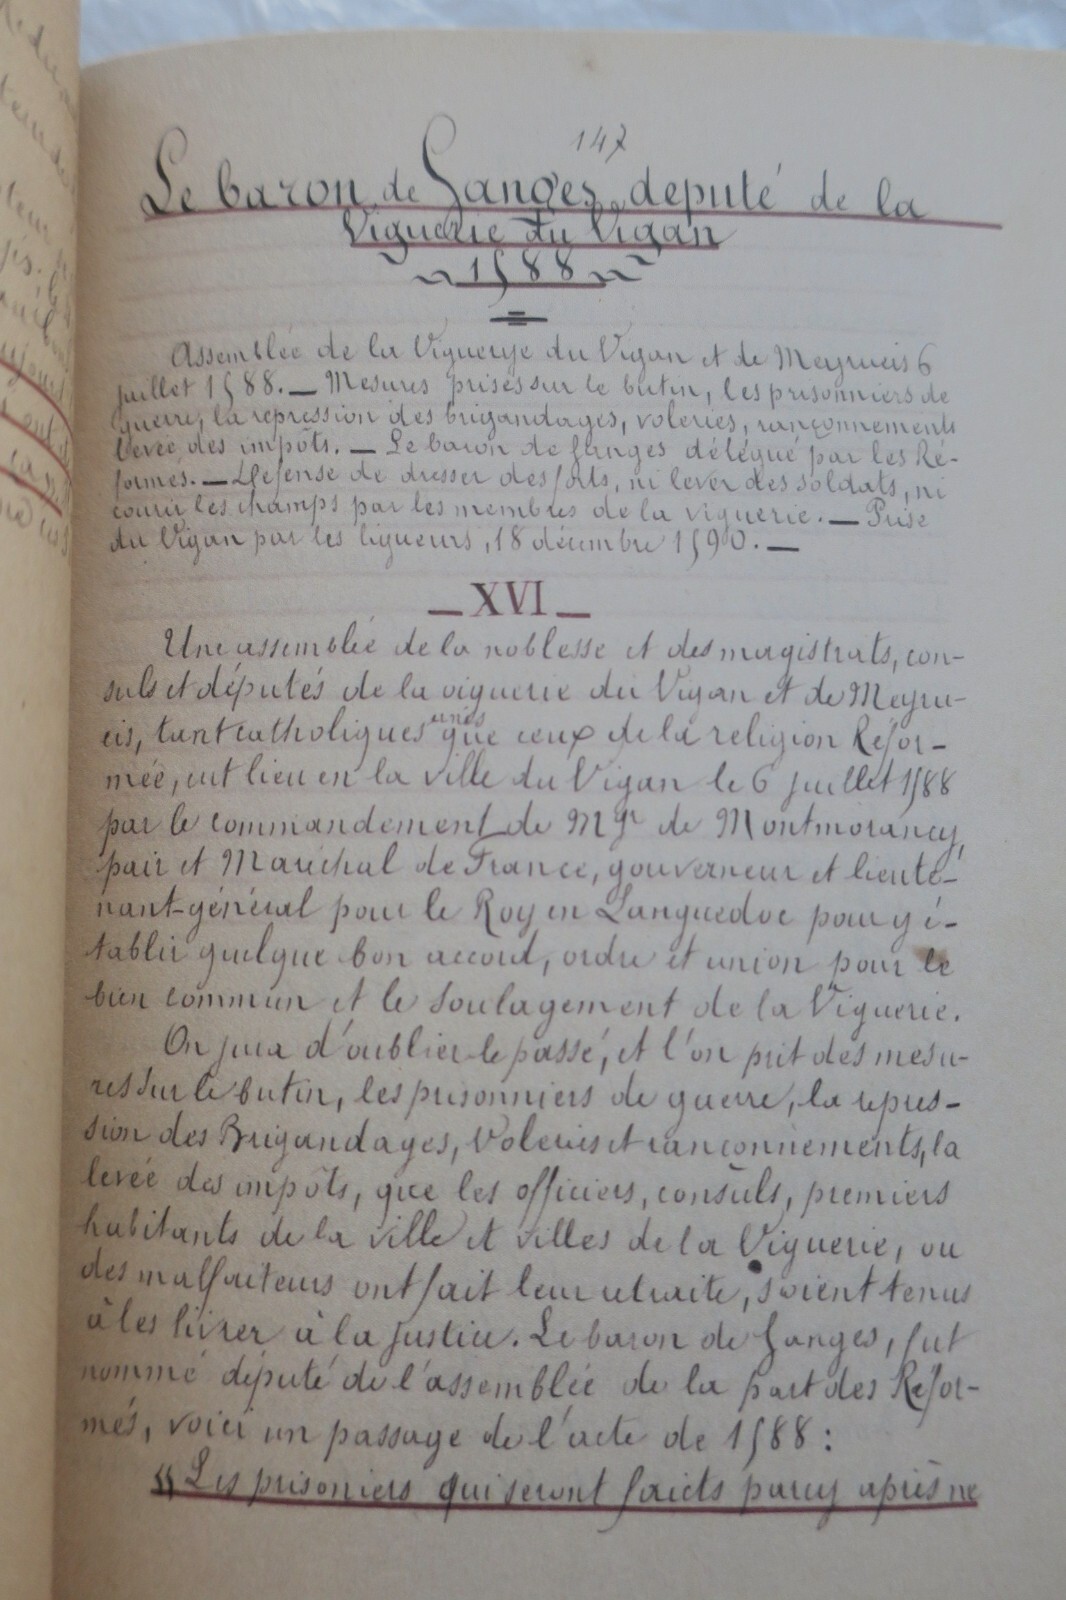 147
Le baron de Ganges, député de la
Viguerie du Vigan
1588
Assemblée de la Viguerye du Vigan et de Meyrueis 6
juillet 1588. — Mesures prises sur le butin, les prisonniers de
guerre, la répression des brigandages, voleries, rançonnements
levée des impôts. — Le baron de Ganges délégué par les Ré-
formés. — Défense de dresser des forts, ni lever des soldats, ni
courir les champs par les membres de la viguerie. — Prise
du Vigan par les ligueurs, 18 décembre 1590. —
— XVI —
Une assemblée de la noblesse et des magistrats, con-
suls et députés de la viguerie du Vigan et de Meyru-
eis, tant catholiques unes que ceux de la religion Réfor-
mée, eut lieu en la ville du Vigan le 6 juillet 1588
par le commandement de Mgr de Montmorancy,
pair et Maréchal de France, gouverneur et lieute-
nant-général pour le Roy en Languedoc pour y é-
tablir quelque bon accord, ordre et union pour le
bien commun et le soulagement de la Viguerie.
On jura d'oublier le passé, et l'on prit des mesu-
res sur le butin, les prisonniers de guerre, la répres-
sion des Brigandages, Voleries et rançonnements, la
levée des impôts, que les officiers, consuls, premiers
habitants de la ville et villes de la Viguerie, ou
des malfaiteurs ont fait leur retraite, soient tenus
à les livrer à la justice. Le baron de Ganges, fut
nommé député de l'assemblée de la part des Réfor-
més, voici un passage de l'acte de 1588 :
« Les prisoniers qui seront faicts parcy après ne